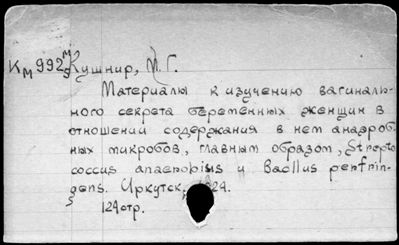 Км 992 Кушнир, М. Г.
Материалы к изучению вагиналь-
ного секрета беременных женщин в
отношении содержания в нем анаэроб-
ных микробов, главным образом, Strepto
coccus anaerobius и Bacillus perfrin-
gens. Иркутск, 1924.
124стр.